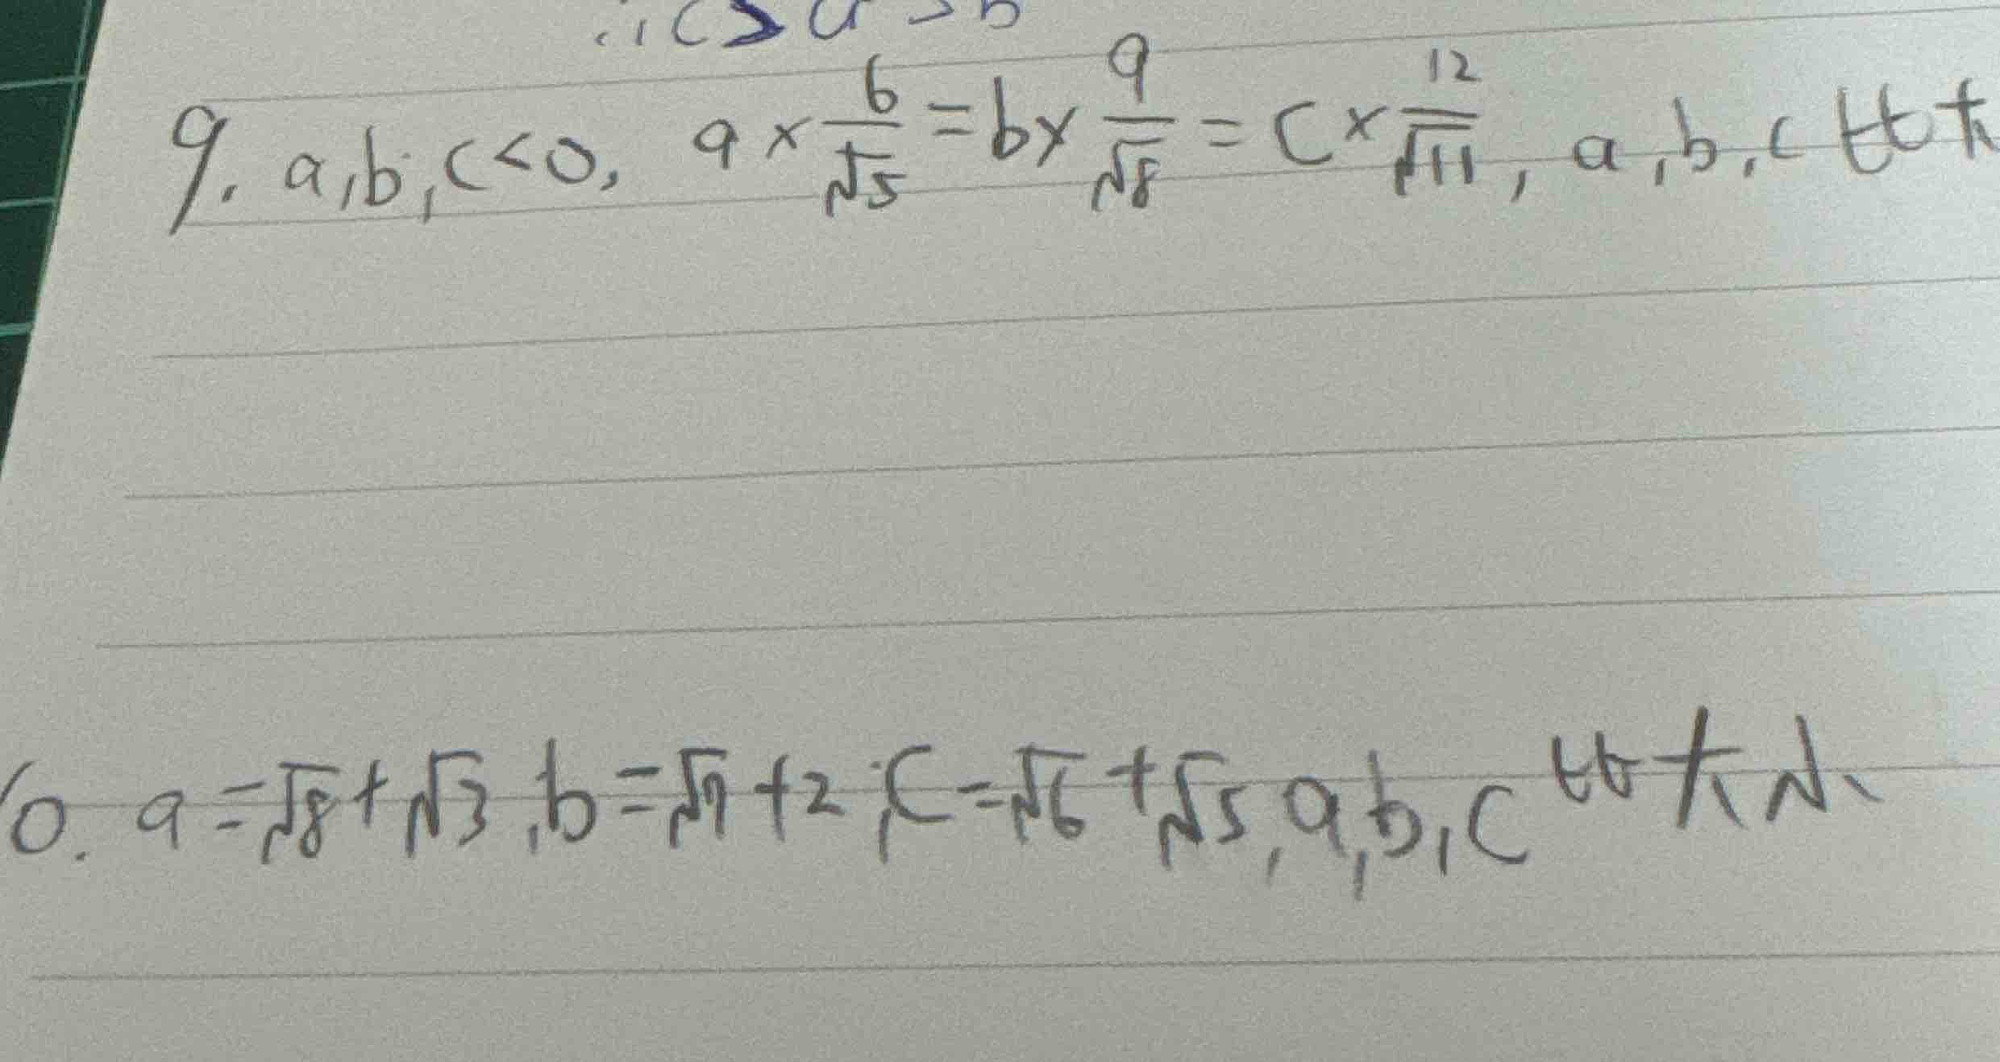 ∴c>a>b
9. a,b,c<0, a×6/√5=b×9/√8=c×12/√11, a,b,c比大
10. a=√8+√3,b=√7+2,c=√6+√5,a,b,c比大小